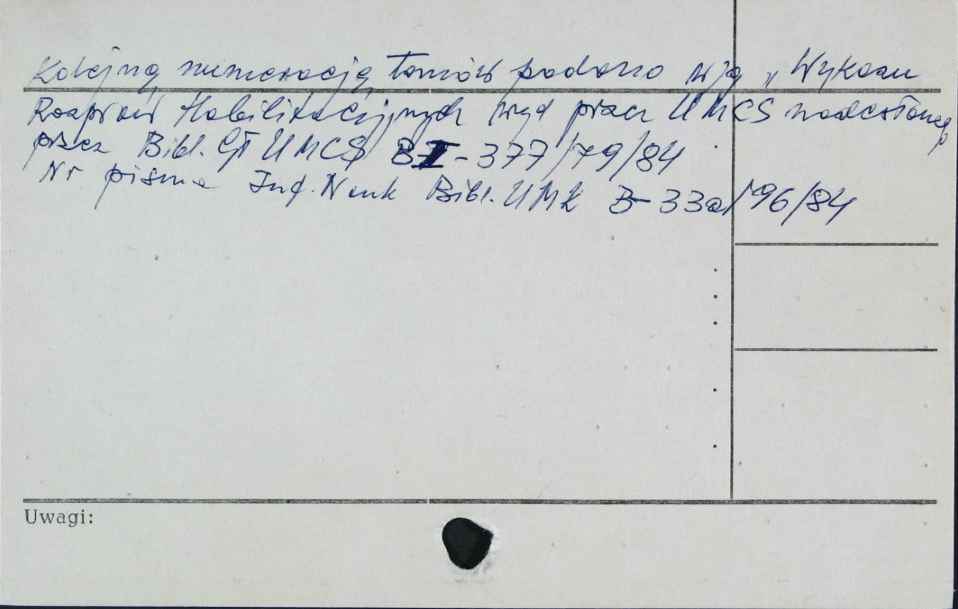 Kolejną numerację tomów podano wg „Wykazu
Rozpraw Habilitacyjnych wyd przez UMCS nadesłanego
przez Bibl. Gł UMCS BI-377/79/84
Nr pisma Inf. Nauk Bibl. UMK B-33a/96/84
Uwagi: